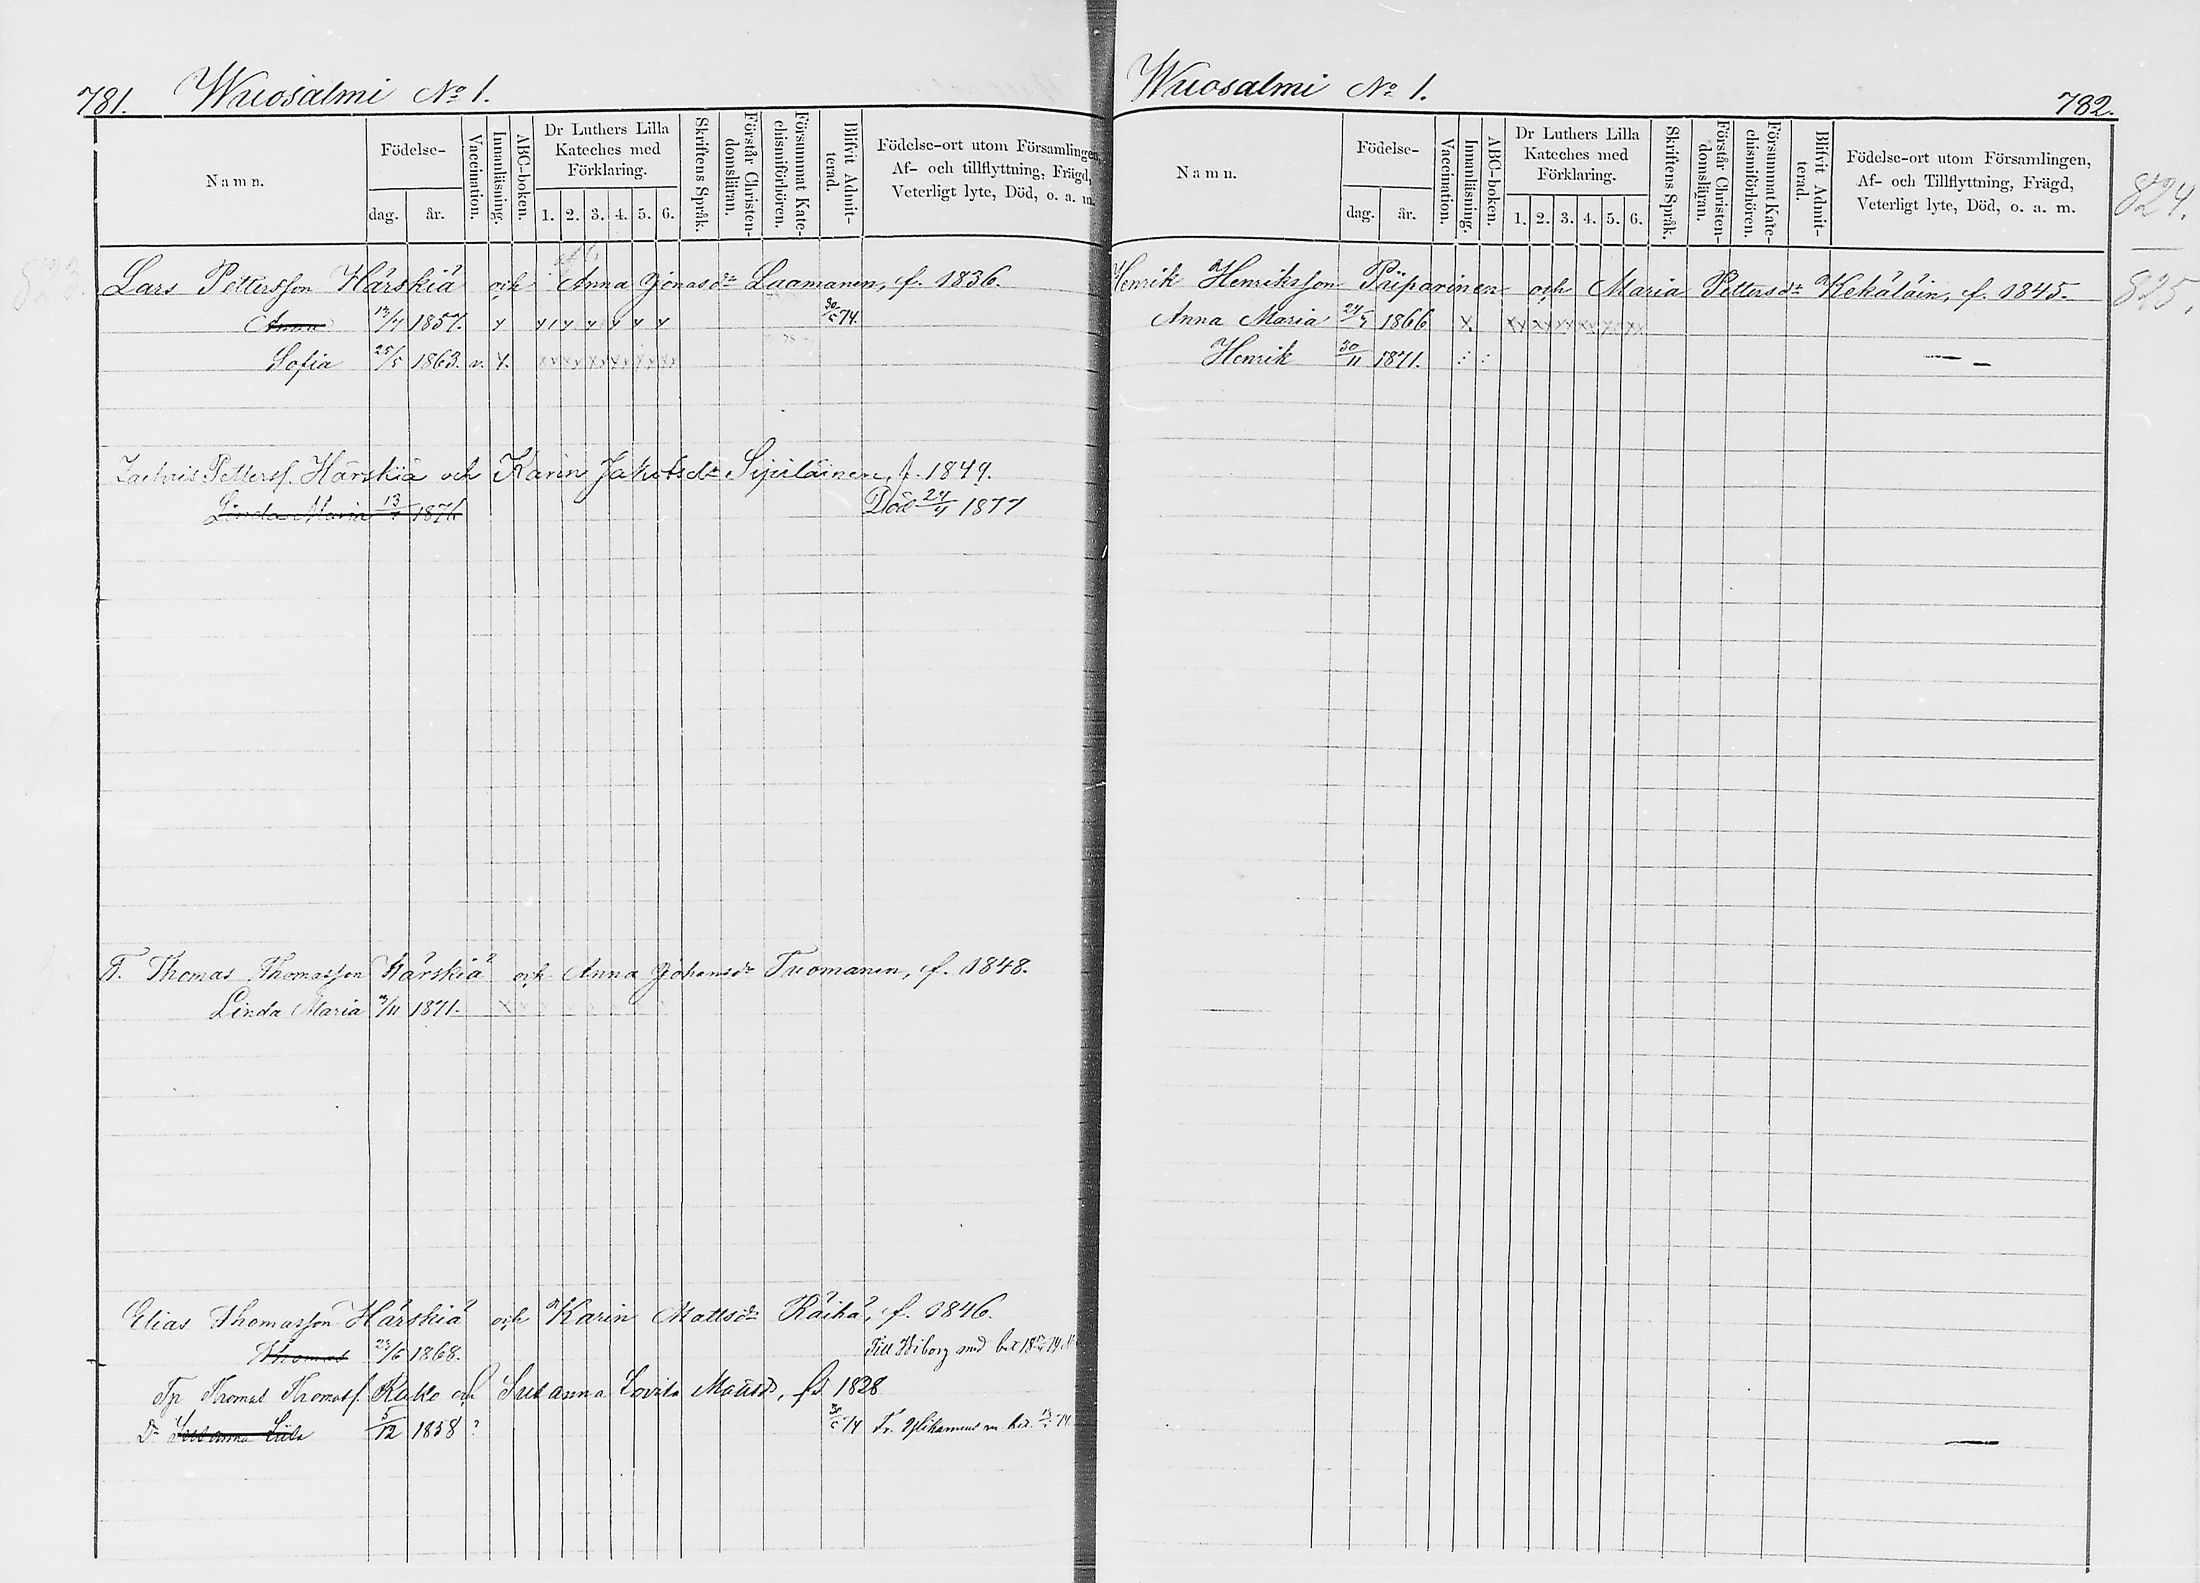 781. Wuosalmi No 1.
Namn.
Födelse-
dag.
år.
Vaccination.
Innanläsning.
ABC-boken.
Dr Luthers Lilla
Kateches med
Förklaring.
1. 2. 3. 4. 5. 6.
Skriftens Språk.
Förstår Christen-
domsläran.
Försummat Kate-
chismiförhören.
Blifvit Admit-
terad.
Födelse-ort utom Församlingen,
Af- och tillflyttning, Frägd,
Veterligt lyte, Död, o. a. m.
823.
Lars Pettersson Härskiä och Anna Jonasdr Laamanen, f. 1836.
Anna 1857. 74.
Sofia 25/5 1863. v. x.
Pettersf. Härskiä och Karin Jakobsdr Sipiläinen, f. 1849.
Linda Maria Död 1877
T. Thomas Thomasson Härskiä och Anna Johansdr Tuomanen, f. 1848.
Linda Maria 1871.
Elias Thomasson Härskiä och Karin Mattsdr Räihä, f. 1846.
Thomas 1868. Till Wiborg med bet
Thomas Thomasf. Kukko och Susanna Lovisa fd. 1828
Dr Susanna 5/12 1858 ? 74
Wuosalmi No 1. 782.
Namn.
Födelse-
dag.
år.
Vaccination.
Innanläsning.
ABC-boken.
Dr Luthers Lilla
Kateches med
Förklaring.
1. 2. 3. 4. 5. 6.
Skriftens Språk.
Förstår Christen-
domsläran.
Försummat Kate-
chismiförhören.
Blifvit Admit-
terad.
Födelse-ort utom Församlingen,
Af- och Tillflyttning, Frägd,
Veterligt lyte, Död, o. a. m.
824.
825.
Henrik Henriksson Piiparinen och Maria Pettersdr Kekäläin, f. 1845.
Anna Maria 1866
Henrik 30/11 1871.